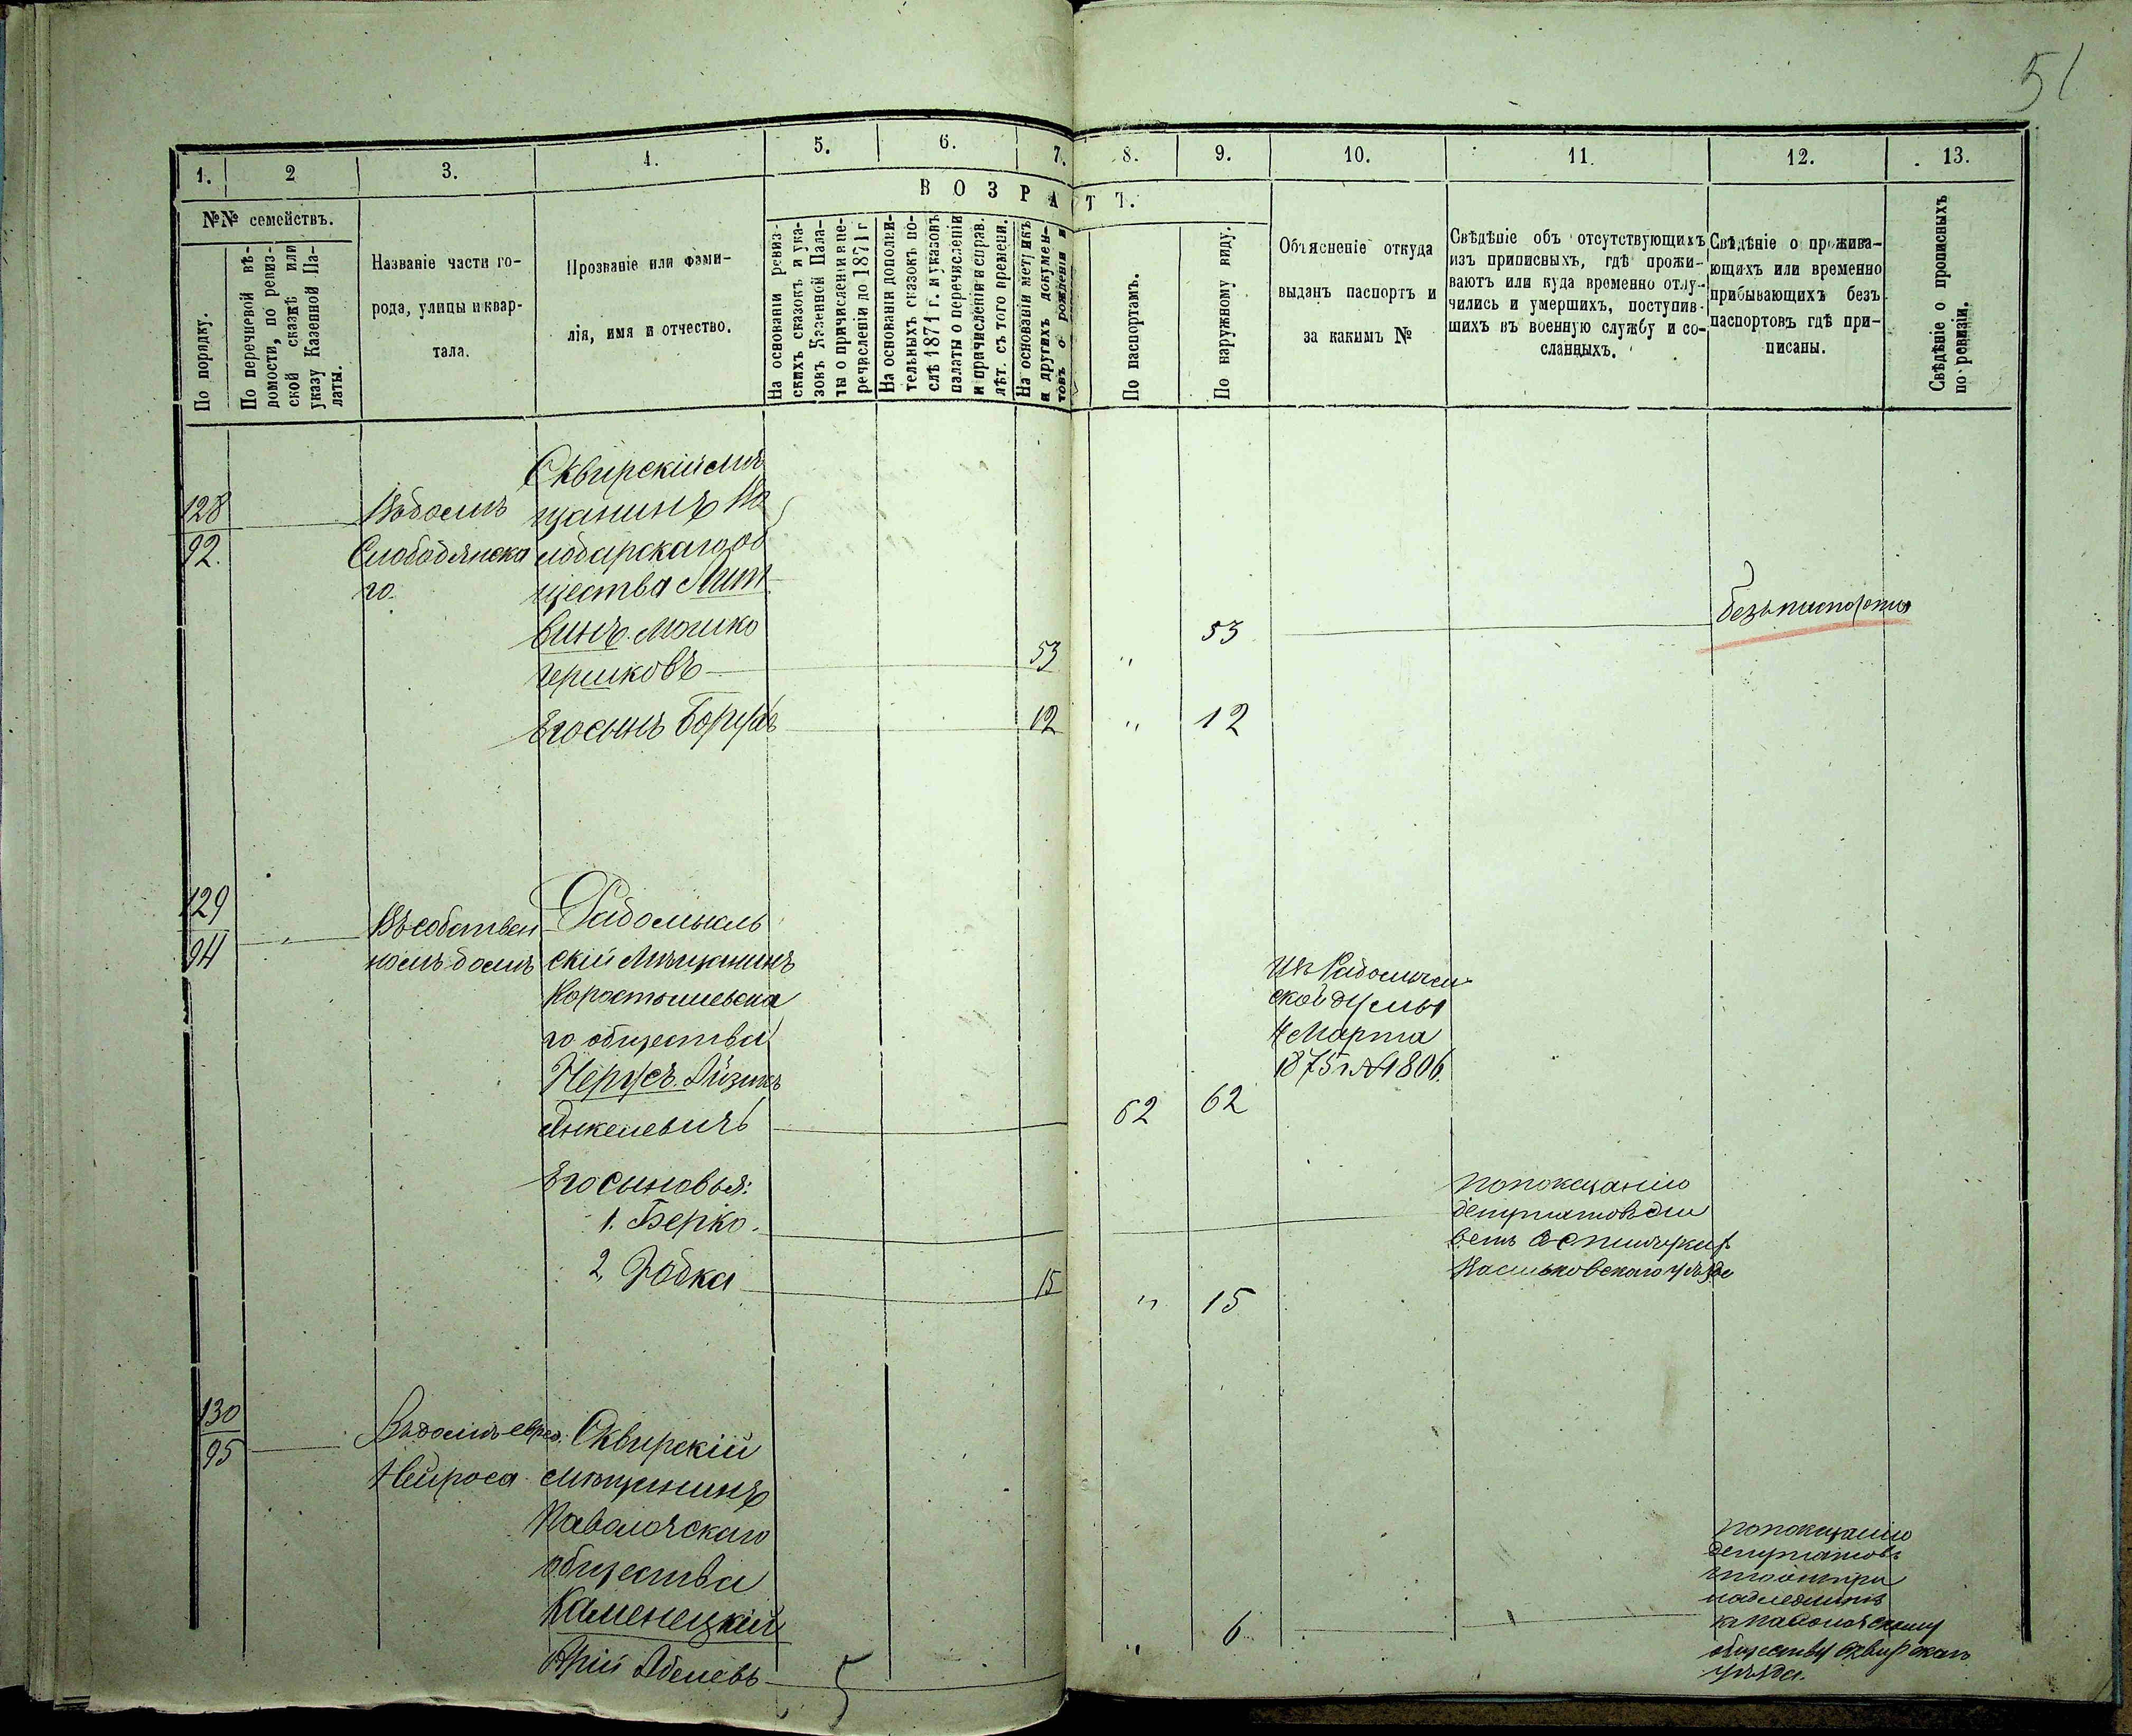 51
1.
2
3.
4.
5.
6.
7.
8.
9.
10.
11.
12.
13.
№№ семействъ.
По порядку.
По перечневой вѣ-
домости, по ревиз-
ской сказкѣ или
указу Казенной Па-
латы.
Названіе части го-
рода, улицы и квар-
тала.
Прозваніе или фами-
лія, имя и отчество.
ВОЗРАСТЪ.
На основаніи ревиз-
скихъ сказокъ и ука-
зовъ Казенной Пала-
ты о причисленіи и пе-
речисленіи до 1871 г
На основаніи дополни-
тельныхъ сказокъ по-
слѣ 1871 г. и указовъ
палаты о перечисленіи
и причисленіи и справ.
лѣт. съ того времени.
На основаніи метрикъ
и другихъ докумен-
товъ о рожденіи и
По паспортамъ.
По наружному виду.
Объясненіе откуда
выданъ паспортъ и
за какимъ №
Свѣдѣніе объ отсутствующихъ
изъ приписныхъ, гдѣ прожи-
ваютъ или куда временно отлу-
чились и умершихъ, поступив-
шихъ въ военную службу и со-
сланныхъ.
Свѣдѣніе о прожива-
ющихъ или временно
прибывающихъ безъ
паспортовъ гдѣ при-
писаны.
Свѣдѣніе о прописныхъ
по ревизіи.
128
92.
Въ домѣ
Слободянска
го.
Сквирскій мѣ
щанинъ Во
лодарскаго об
щества Лит
винъ Мошко
Гершковъ
53
"
53
безъ паспорта
Его сынъ Борухъ
12
"
12
129
94
"
Въ собствен
номъ домѣ
Радомысль
скій Мѣщанинъ
Коростышевска
го общества
Нерусъ Айзикъ
Янкелевичъ
62
62
Изъ Радомысль
ской думы
4 Марта
1875 г. № 1806.
Его сыновья:
1. Берко.
по показанію
депутатовъ жи
ветъ въ с. Пинчукахъ
Васильковскаго уѣзда
2,
15
"
15
130
95
Въ домѣ еврея
Нейроса
Сквирскій
мѣщанинъ
Паволочскаго
общества
Каменецкій
Арій Абелевъ
"
6
по показанію
депутатовъ
что онъ при
надлежитъ
къ Паволочскому
обществу Сквирскаго
уѣзда.
5